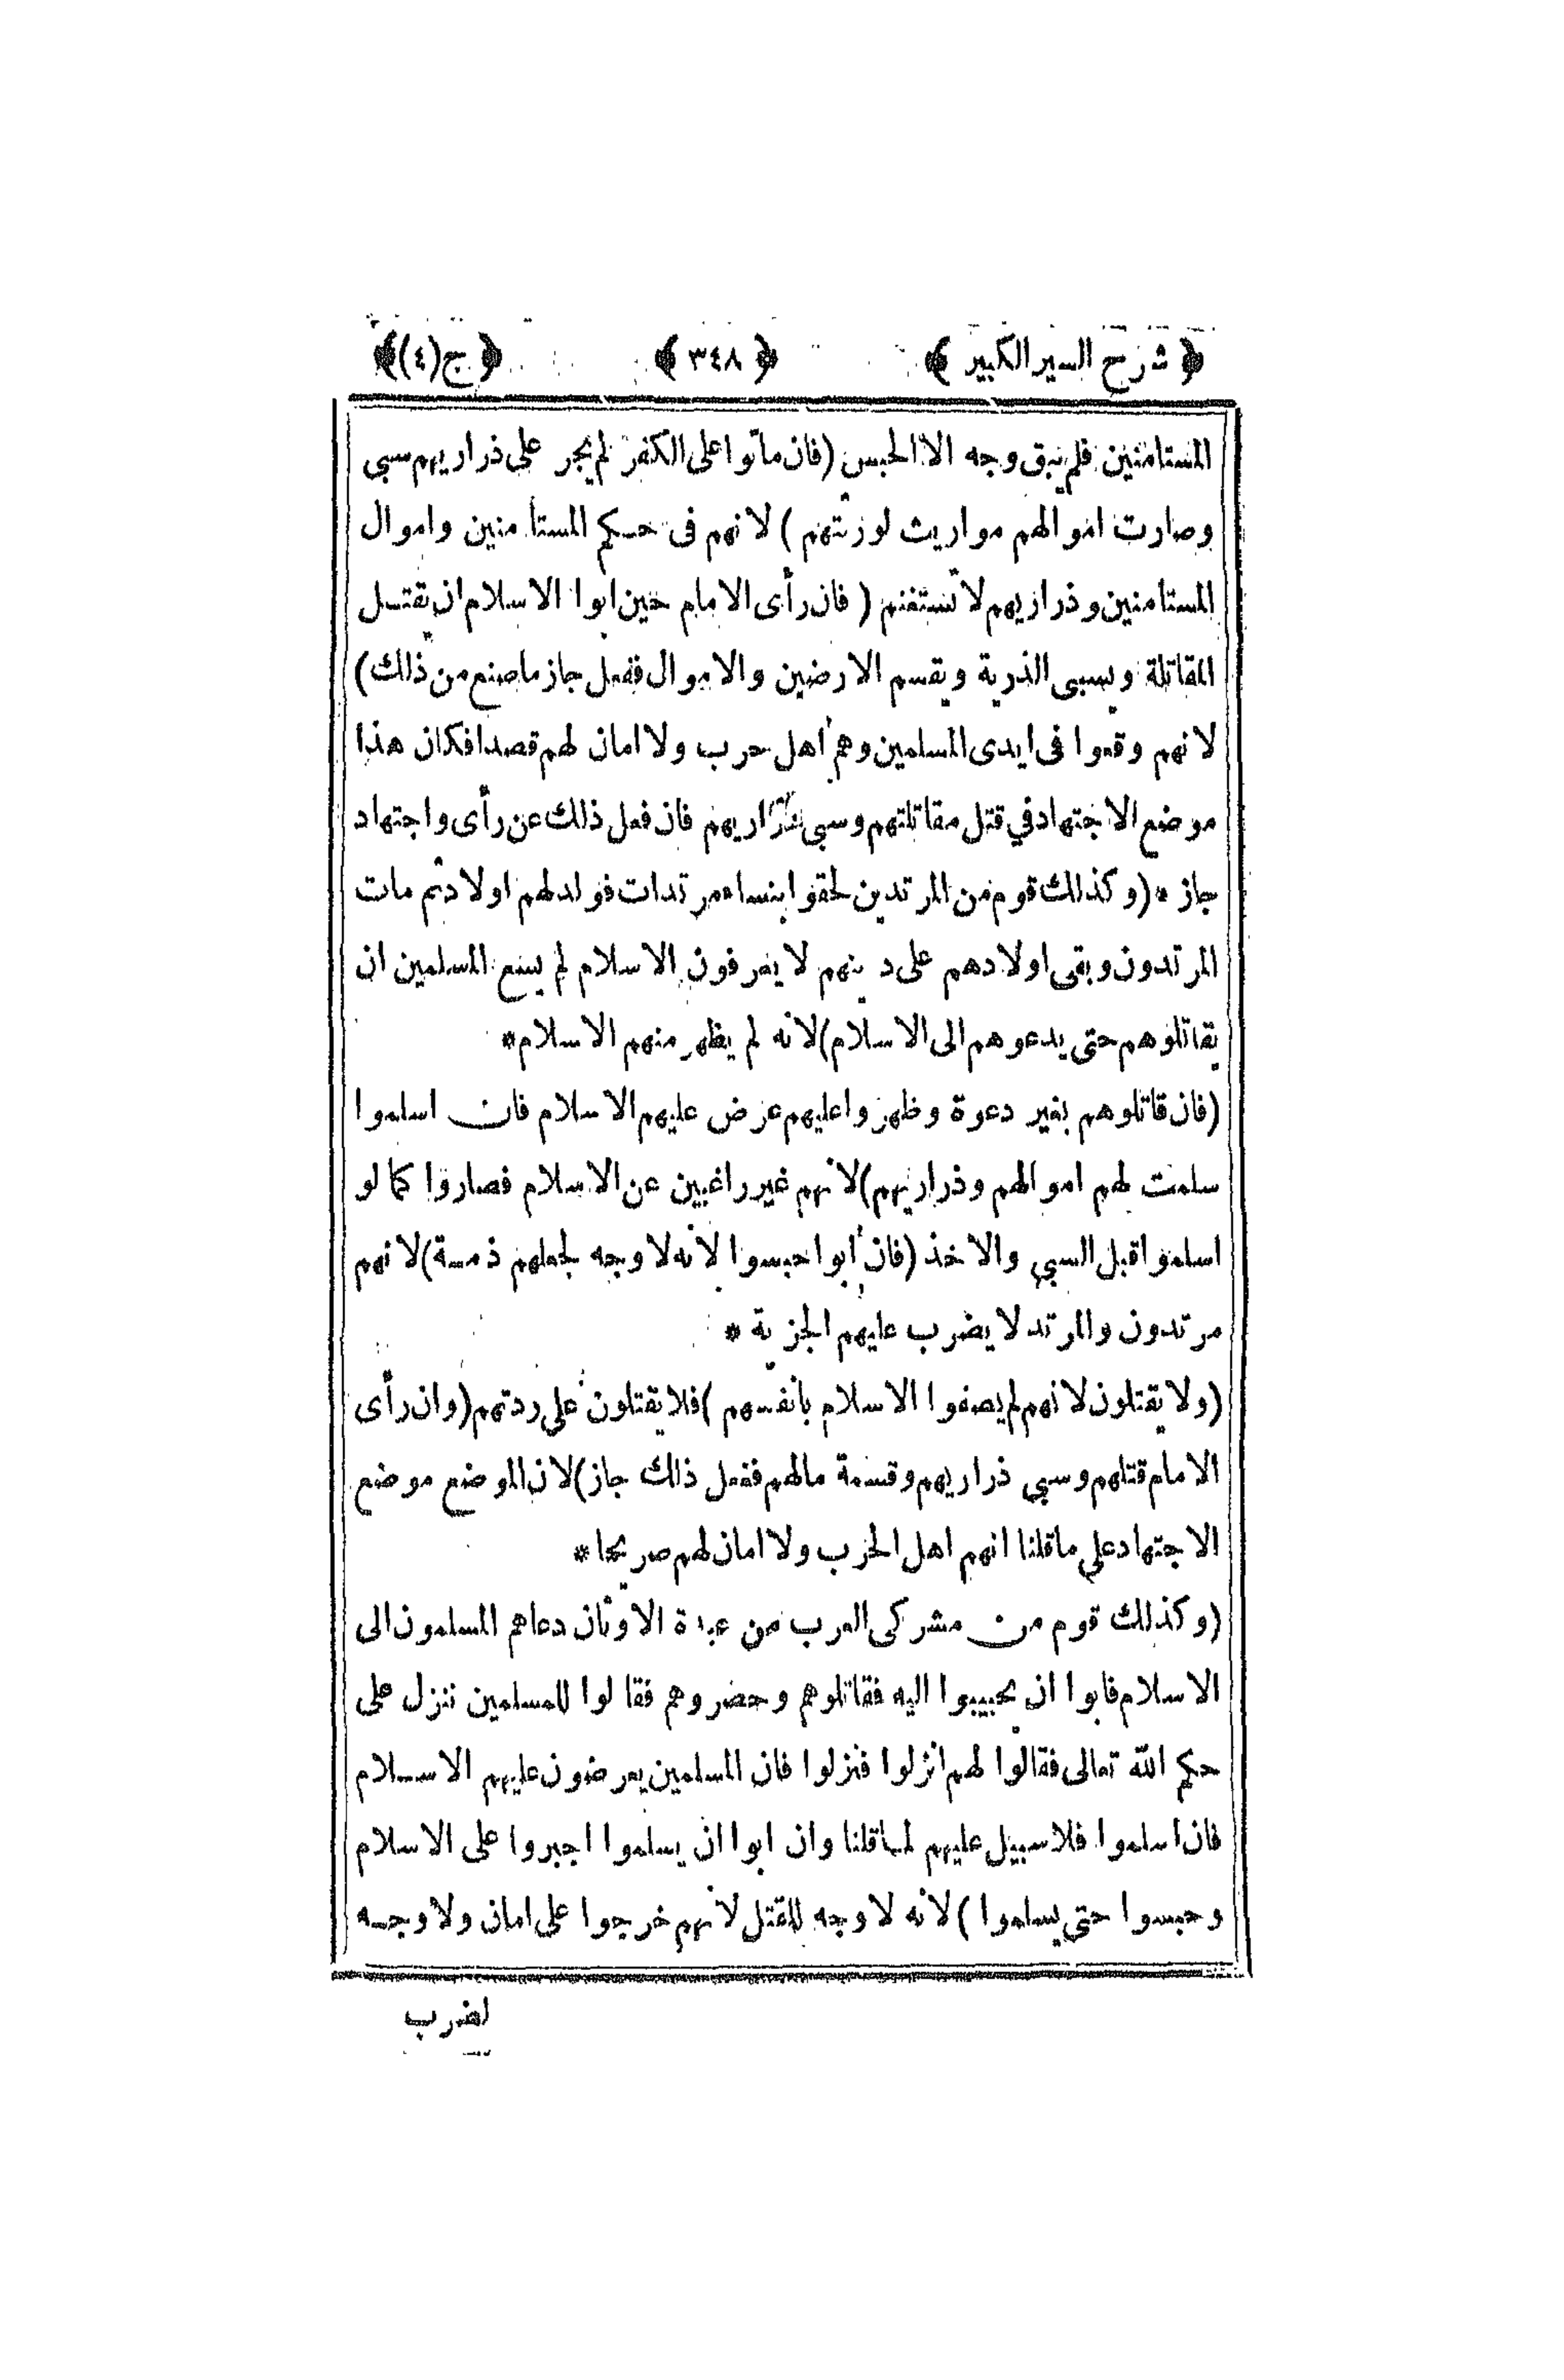 ﴿ شرح السير الكبير ﴾ ﴿ ٣٤٨ ﴾ ﴿ ج(٤) ﴾
المستامنين فلم يبق وجه الا الحبس (فان ماتوا على الكفر لم يجر على ذراريهم سبي
وصارت اموالهم مواريث لورثتهم ) لانهم فى حكم المستا منين واموال
المستامنين وذراريهم لا تستغنم ( فان رأى الامام حين ابوا الاسلام ان يقتل
المقاتلة ويسبى الذرية ويقسم الارضين والاموال ففعل جاز ماصنع من ذلك)
لانهم وقعوا فى ايدى المسلمين وهم اهل حرب ولا امان لهم قصدا فكان هذا
موضع الاجتهاد في قتل مقاتلتهم وسبي ذراريهم فان فعل ذلك عن رأى واجتهاد
جاز * (وكذلك قوم من المرتدين لحقوا بنساء مرتدات فولد لهم اولاد ثم مات
المرتدون وبقى اولادهم على دينهم لا يعرفون الاسلام لم يسع المسلمين ان
يقاتلوهم حتى يدعوهم الى الاسلام)لانه لم يظهر منهم الاسلام*
(فان قاتلوهم بغير دعوة وظهروا عليهم عرض عليهم الاسلام فان اسلموا
سلمت لهم اموالهم وذراريهم)لانهم غير راغبين عن الاسلام فصاروا كما لو
اسلموا قبل السبي والاخذ (فان أبوا حبسوا لانه لا وجه لجعلهم ذمة)لانهم
مرتدون والمرتد لا يضرب عليهم الجزية *
(ولا يقتلون لانهم لم يصفوا الاسلام بانفسهم )فلا يقتلون على ردتهم(وان رأى
الامام قتلهم وسبي ذراريهم وقسمة مالهم ففعل ذلك جاز)لان الموضع موضع
الاجتهاد على ماقلنا انهم اهل الحرب ولا امان لهم صريحا*
(وكذلك قوم من مشركى العرب من عبدة الاوثان دعاهم المسلمون الى
الاسلام فابوا ان يجيبوا اليه فقاتلوهم وحضروهم فقالوا للمسلمين ننزل على
حكم الله تعالى فقالوا لهم انزلوا فنزلوا فان المسلمين يعرضون عليهم الاسلام
فان اسلموا فلا سبيل عليهم لما قلنا وان ابوا ان يسلموا اجبروا على الاسلام
وحبسوا حتى يسلموا )لانه لا وجه للقتل لانهم خرجوا على امان ولا وجه
لضرب